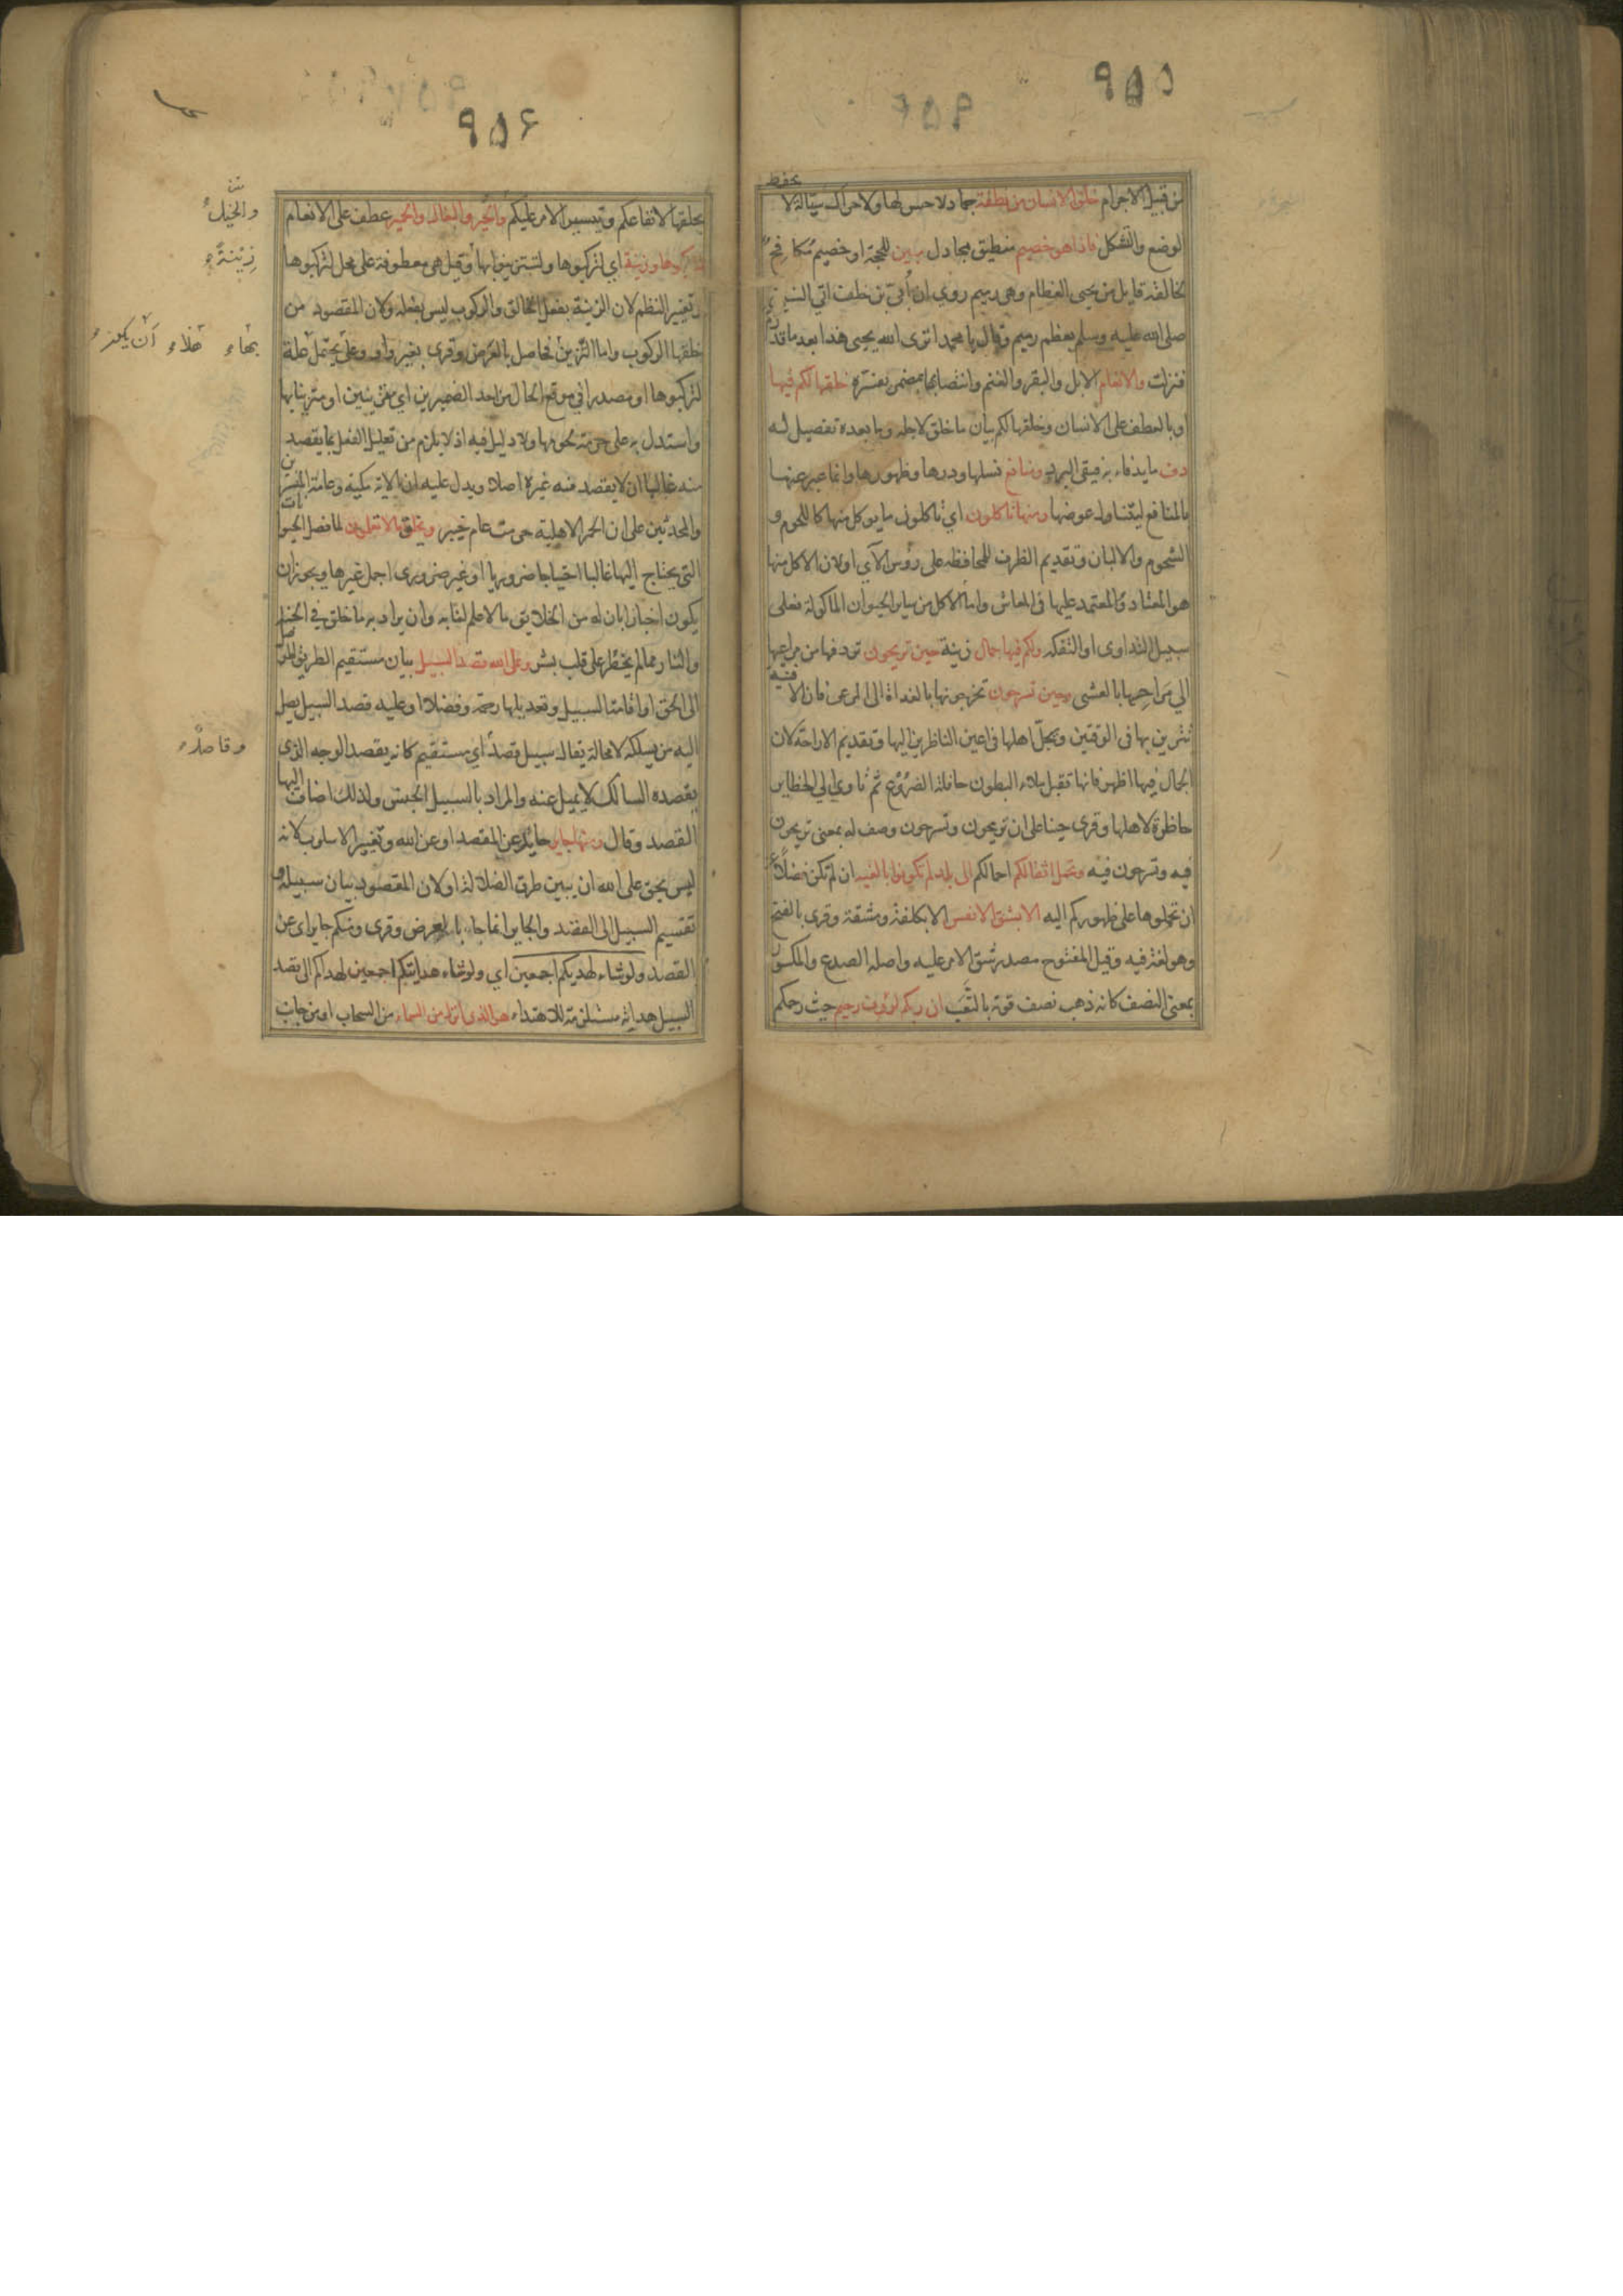 ٩٥٥
يحفظ
من قبيل الاجرام خلق الانسان من نطفة جماد لا حس لها ولا حراك سيالة لا
الوضع والتشكل فاذا هو خصيم منطيق مجادل مبين للحجة او خصيم مكافح
لخالقه قايل من يحيى العظام وهي رميم روي ان أبيّ بن خلف اتي النبي
صلى الله عليه وسلم بعظم رميم وقال يا محمد اترى الله يحيى هذا بعد ما قد رم
فنزلت والانعام الابل والبقر والغنم وانتصابها بمضمر يفسّره خلقها لكم فيها
او بالعطف على الانسان وخلقها لكم بيان ما خلق لاجله وما بعده تفصيل له
دفء ما يدفاء به فيقى البرد ومنافع نسلها ودرها وظهورها وانما عبر عنها
بالمنافع ليتناول عوضها ومنها تاكلون اي تاكلون ما يوكل منها كاللحوم و
الشحوم والالبان وتقديم الظرف للمحافظه على رؤس الآي او لان الاكل منها
هو المعتاد المعتمد عليها فى المعاش واما الاكل من ساير الحيوان الماكولة فعلى
سبيل التداوى او التفكه ولكم فيها جمال زينة حين تريحون تردونها من مراعيها
الي مَراحِها بالعشى وحين تسرحون تخرجونها بالغداة الى المرعى فان الافنية
تتزين بها فى الوقتين ويجلّ اهلها فى اعين الناظرين اليها وتقديم الاراحة لان
الجمال فيها اظهر فانها تقبل ملاء البطون حافلة الضروع ثم تاوي الي الحظاير
حاظرة لاهلها وقرى حينا على ان تريحون وتسرحون وصف له بمعنى تريحون
فيه وتسرحون فيه وتحمل اثقالكم احمالكم الى بلد لم تكونوا بالغيه ان لم تكن فضلًا عن
ان تحملوها على ظهوركم اليه الا بشق الانفس الا بكلفة ومشقة وقرى بالفتح
وهو لغة فيه وقيل المفتوح مصدر شق الامر عليه واصله الصدع والمكسور
بمعنى النصف كانه ذهب نصف قوته بالتَّعَب ان ربكم لرؤوف رحيم حيث رحمكم
٩٥۶
بخلقها لانتفاعكم وتيسير الامر عليكم والخيل والبغال والحمير عطف على الانعام
لتركبوها وزينة اي لتركبوها ولتتزينوا بها وقيل هى معطوفة على محل لتركبوها
وتغيير النظم لان الزينة بفعل الخالق والركوب ليس بفعله ولان المقصود من
خلقها الركوب واما التزين فحاصل بالعرض وقرى بغير واو وعلى يحتمل علة
لتركبوها او مصدرا في موقع الحال من احد الضميرين اي متزينين او متزينا بها
واستدل به على حرمة لحومها ولا دليل فيه اذ لا يلزم من تعليل الفعل بما يقصد
منه غالبا ان لا يقصد منه غيره اصلا ويدل عليه ان الاية مكية وعامة المفسرين
والمحدثين على ان الحمر الاهلية حرمت عام خيبر ويخلق ما لا تعلمون لما فصل الحيوانات
التى يحتاج اليها غالبا احتياجا ضروريا او غير ضرورى اجمل غيرها ويجوز ان
يكون اخبارا بان له من الخلايق ما لا علم لنا به وان يراد به ما خلق في الجنة
والنار مما لم يخطر على قلب بشر وعلى الله قصد السبيل بيان مستقيم الطريق الموصل
الى الحق او اقامة السبيل وتعديلها رحمة وفضلا او عليه قصد السبيل يصل
اليه من يسلكه لا محالة يقال سبيل قصدٌ اي مستقيم كانه يقصد الوجه الذى
يقصده السالك لا يميل عنه والمراد بالسبيل الجنس ولذلك اضاف اليها
القصد وقال ومنها جاير حايد عن المقصد او عن الله وتغيير الاسلوب لانه
ليس بحق على الله ان يبين طرق الضلالة او لان المقصود بيان سبيله و
تقسيم السبيل الى القصد والجاير انما جاء بالعرض وقرى ومنكم جاير اى عن
القصد ولو شاء لهديكم اجمعين اي ولو شاء هدايتكم اجمعين لهداكم الى قصد
السبيل هداية مستلزمة للاهتداء هو الذى انزل من السماء من السحاب او من جانب
والخيل
زينة
بها
وقاصد